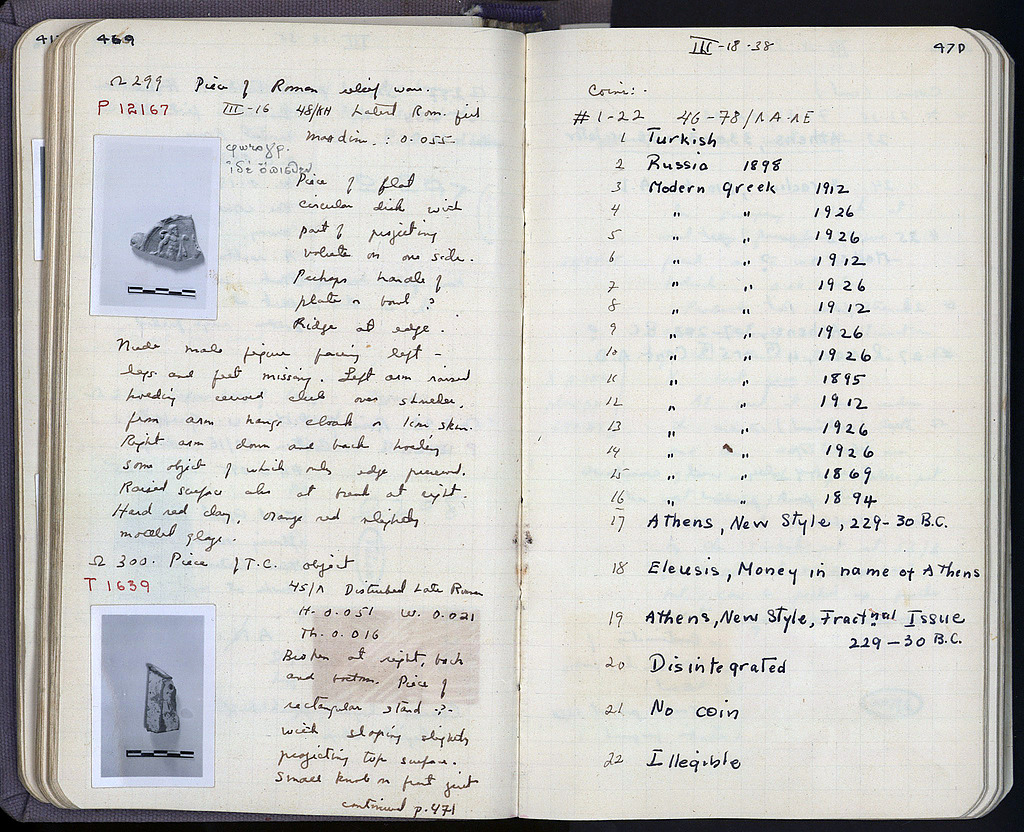 469
Ω 299 Piece of Roman relief ware.
P 12167 III-16 48/ΚΗ Latest Rom. fill
Max dim.: 0.055
φωτογρ.
ἰδὲ ὄπισθεν.
Piece of flat
circular disk with
part of projecting
volute on one side.
Perhaps handle of
plate or bowl?
Ridge at edge.
Nude male figure facing left -
legs and feet missing. Left arm raised
holding curved club over shoulder,
from arm hangs cloak or lion skin.
Right arm down and back holding
some object of which only edge preserved.
Raised surface also at break at right.
Hard red clay, orange red slightly
mottled glaze.
Ω 300. Piece of T.C. object
T 1639 45/Λ Disturbed Late Roman
H. 0.051 W. 0.021
Th. 0.016
Broken at right, back
and bottom. Piece of
rectangular stand -?-
with sloping slightly
projecting top surface.
Small knob on front just
continued p. 471
III-18-38 470
Coins:
#1-22 46-78/ΛΑ-ΛΕ
1 Turkish
2 Russia 1898
3 Modern Greek 1912
4 " " 1926
5 " " 1926
6 " " 1912
7 " " 1926
8 " " 1912
9 " " 1926
10 " " 1926
11 " " 1895
12 " " 1912
13 " " 1926
14 " " 1926
15 " " 1869
16 " " 1894
17 Athens, New Style, 229-30 B.C.
18 Eleusis, Money in name of Athens
19 Athens, New Style, Fractnal Issue
229-30 B.C.
20 Disintegrated
21 No coin
22 Illegible